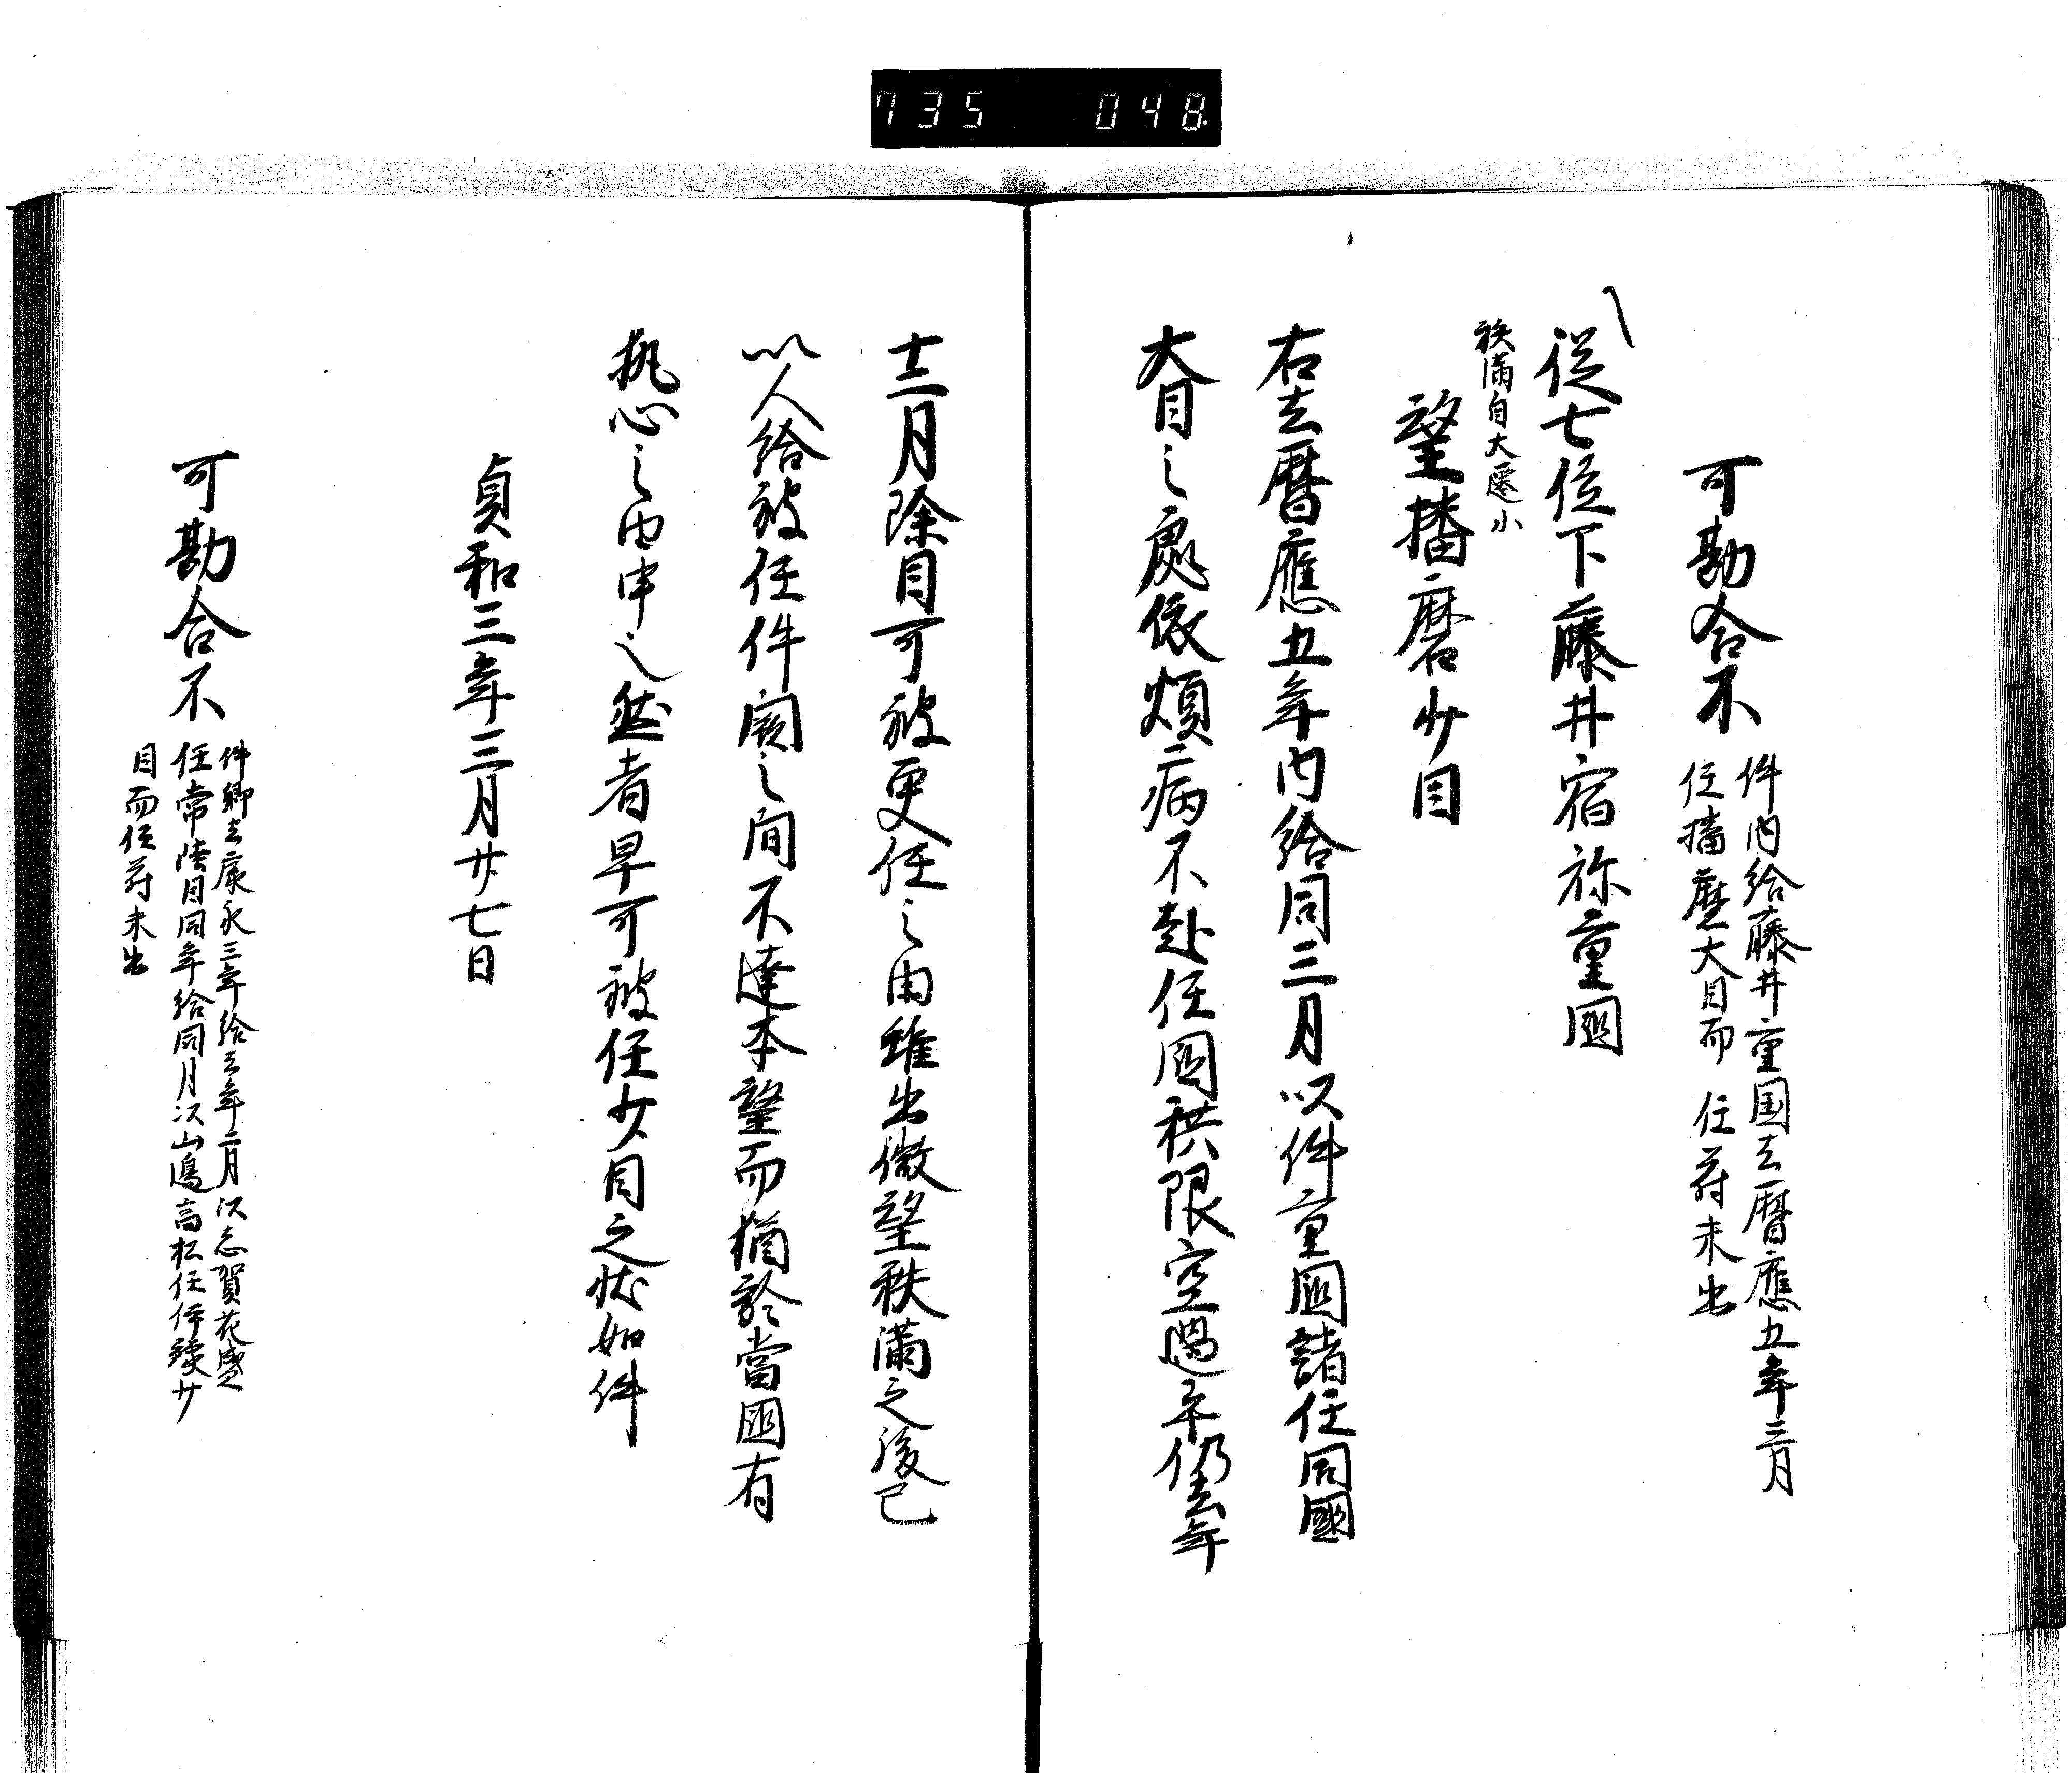 735 048
可勘合不
件内給藤井重国去暦應五年三月
任播磨大目而任符未出
從七位下藤井宿祢重國
秩滿自大遷小
望播磨少目
右去暦應五年内給同三月以件重國請任同國
大目之處依煩病不赴任國秩限空過畢仍去年
十二月除目可被更任之由雖出微望秩滿之後已
以人給被任件闕之間不達本望而猶於當國有
執心之由申之然者早可被任少目之状如件
貞和三年三月廿七日
可勘合不
件卿去康永三年給去年二月以志賀花盛
任常陸目同年給同月以山邊高松任伊豫少
目而任符未出